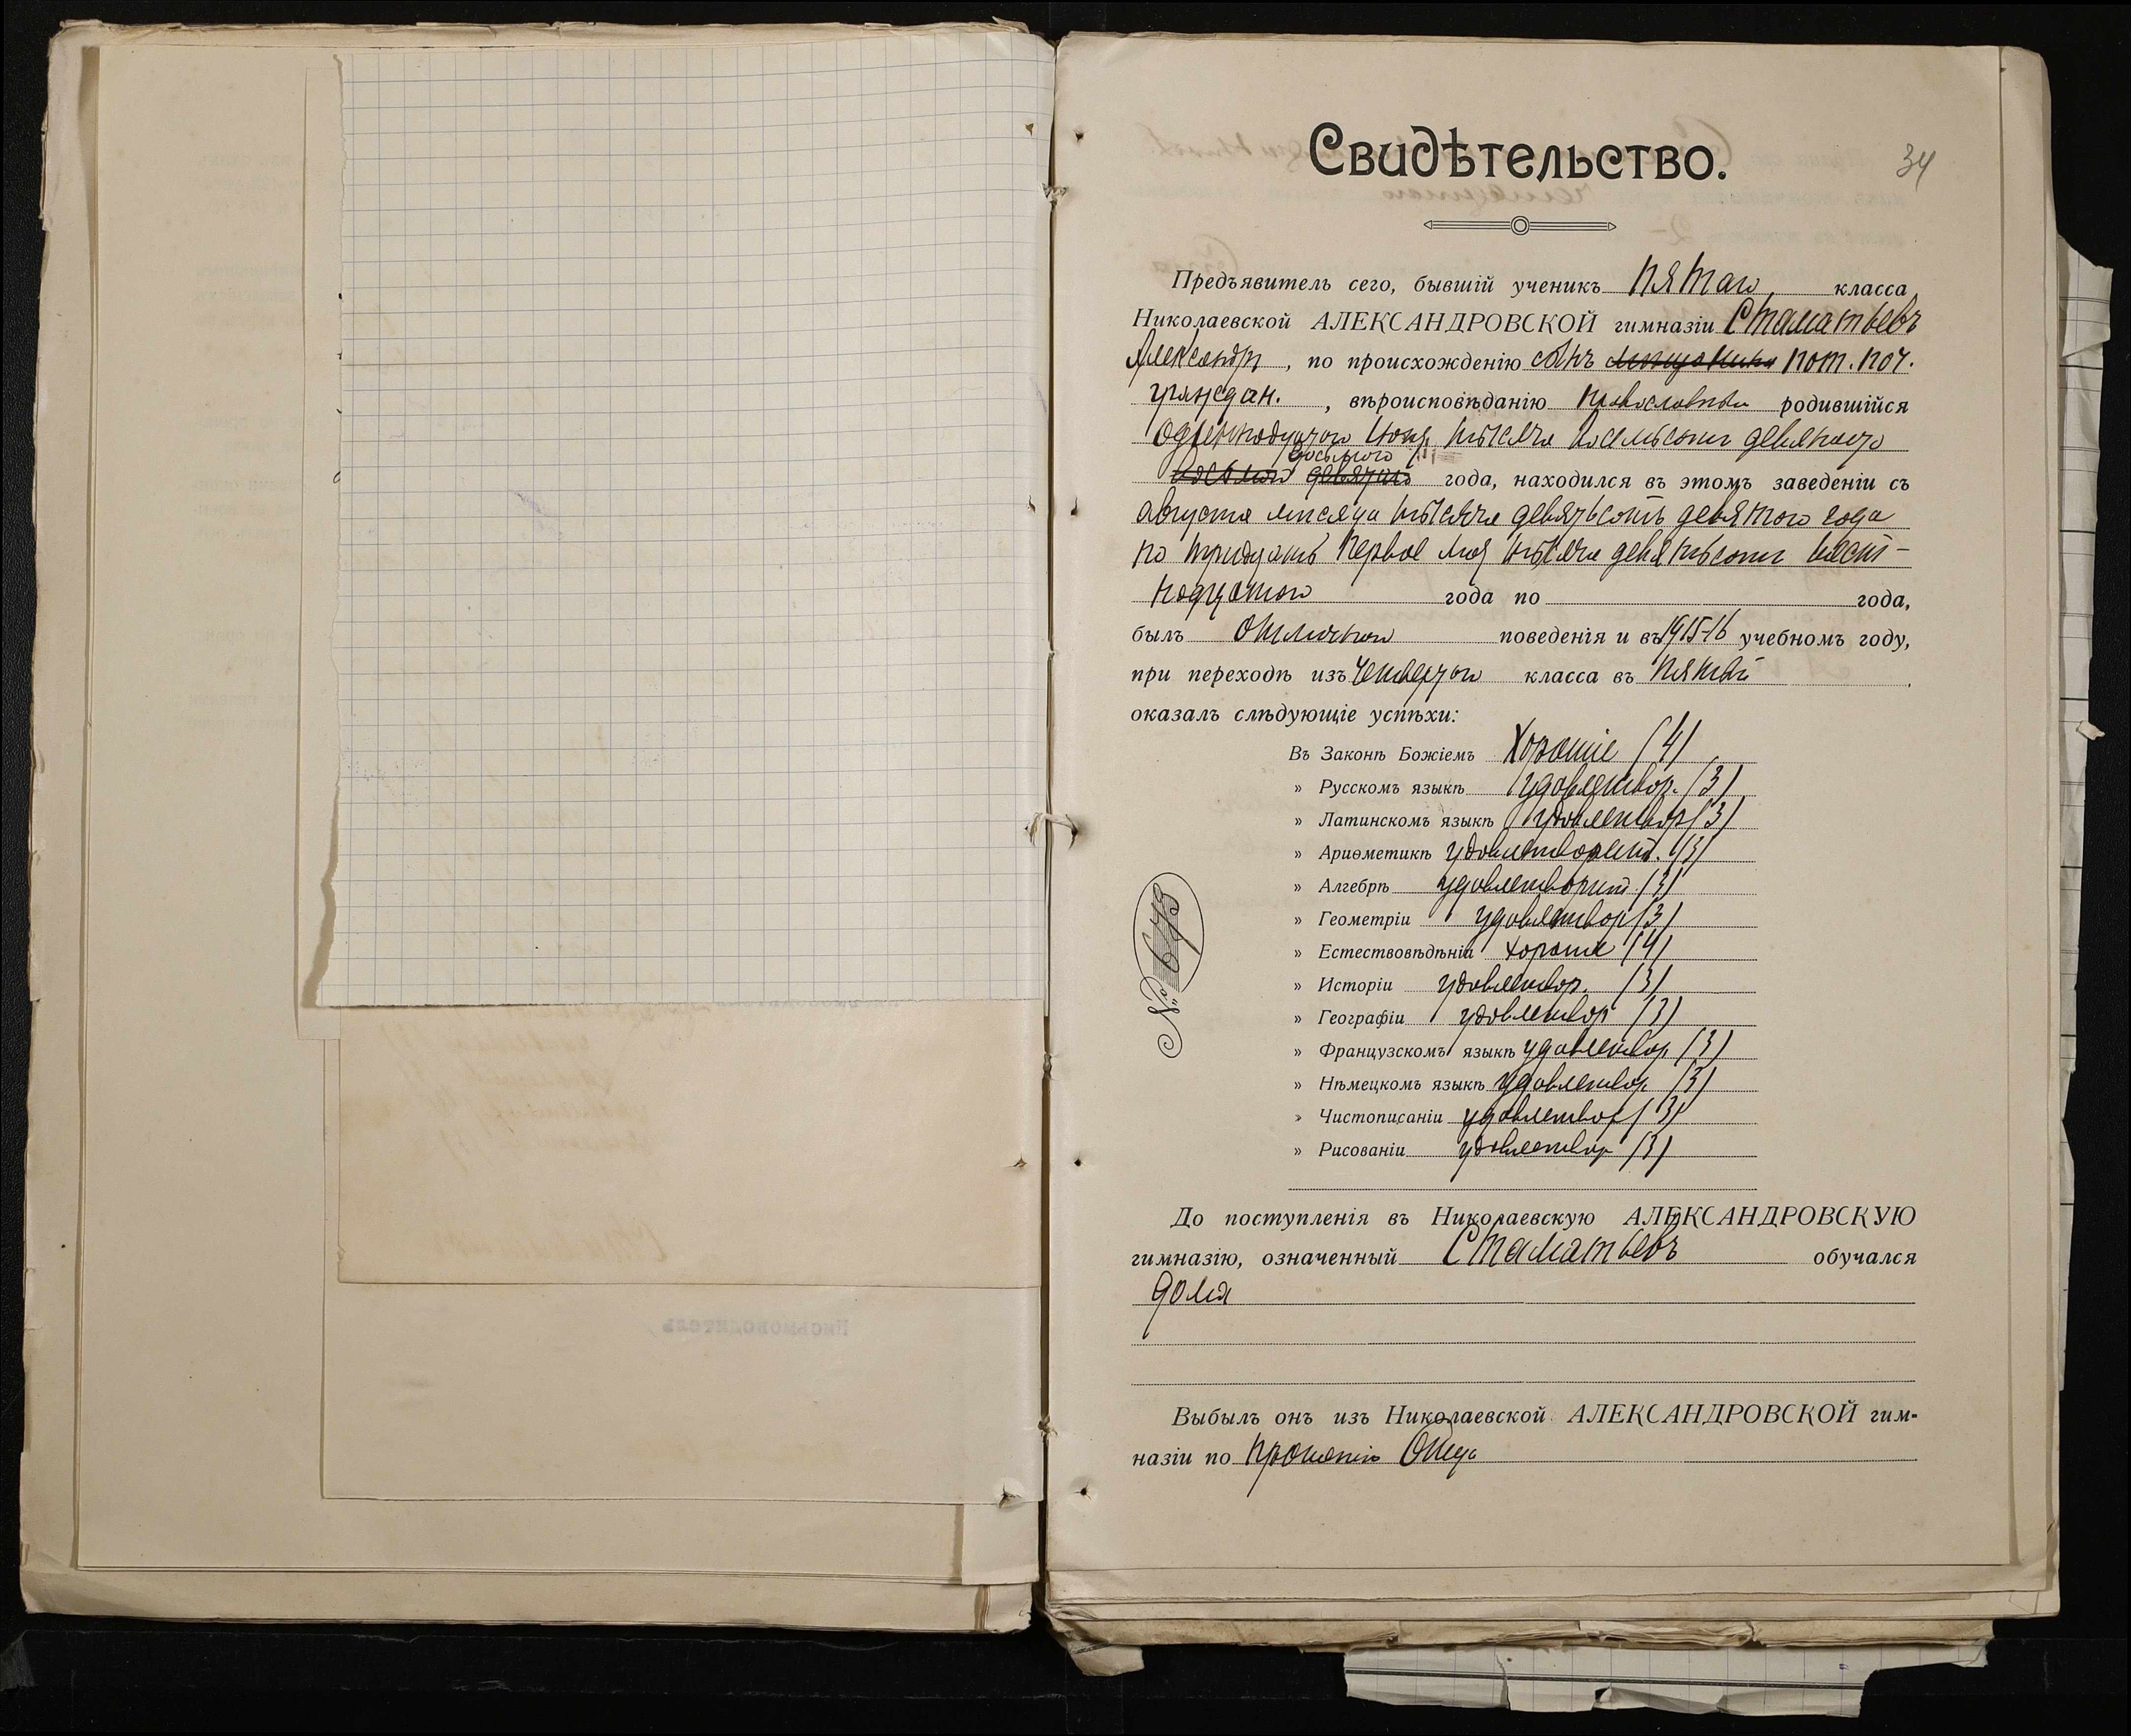 Свидѣтельство.
34
Предъявитель сего, бывшій ученикъ пятаго класса
Николаевской АЛЕКСАНДРОВСКОЙ гимназіи Стаматьевъ
Александръ, по происхожденію сынъ мѣщанина пот. поч.
граждан., вѣроисповѣданію православнаго родившійся
одиннадцатаго Іюня тысяча восемьсотъ девяносто
восьмого
восьмого девятаго года, находился въ этомъ заведеніи съ
августа мѣсяца тысяча девятьсотъ девятого года
по тридцать первое мая тысяча девятьсотъ шест-
надцатаго года по года,
былъ отличнаго поведенія и въ 1915-16 учебномъ году,
при переходѣ изъ четвертаго класса въ пятый
оказалъ слѣдующіе успѣхи:
Въ Законѣ Божіемъ хорошіе (4)
» Русскомъ языкѣ удовлетвор. (3)
» Латинскомъ языкѣ удовлетвор (3)
» Ариѳметикѣ удовлетворит. (3)
» Алгебрѣ удовлетворит (3)
» Геометріи удовлетвор (3)
» Естествовѣдѣніи хорошіе (4)
» Исторіи удовлетвор. (3)
» Географіи удовлетвор (3)
» Французскомъ языкѣ удовлетвор (3)
» Нѣмецкомъ языкѣ удовлетвор (3)
» Чистописаніи удовлетвор (3)
» Рисованіи удовлетвор (3)
№ 673
До поступленія въ Николаевскую АЛЕКСАНДРОВСКУЮ
гимназію, означенный Стаматьевъ обучался
дома
Выбылъ онъ изъ Николаевской АЛЕКСАНДРОВСКОЙ гим-
назіи по прошенію отца